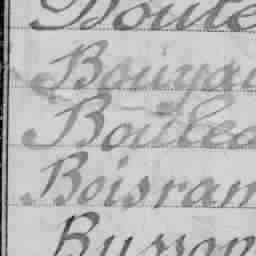 Doute
Bouyau
Bouled
Boisram
Busson